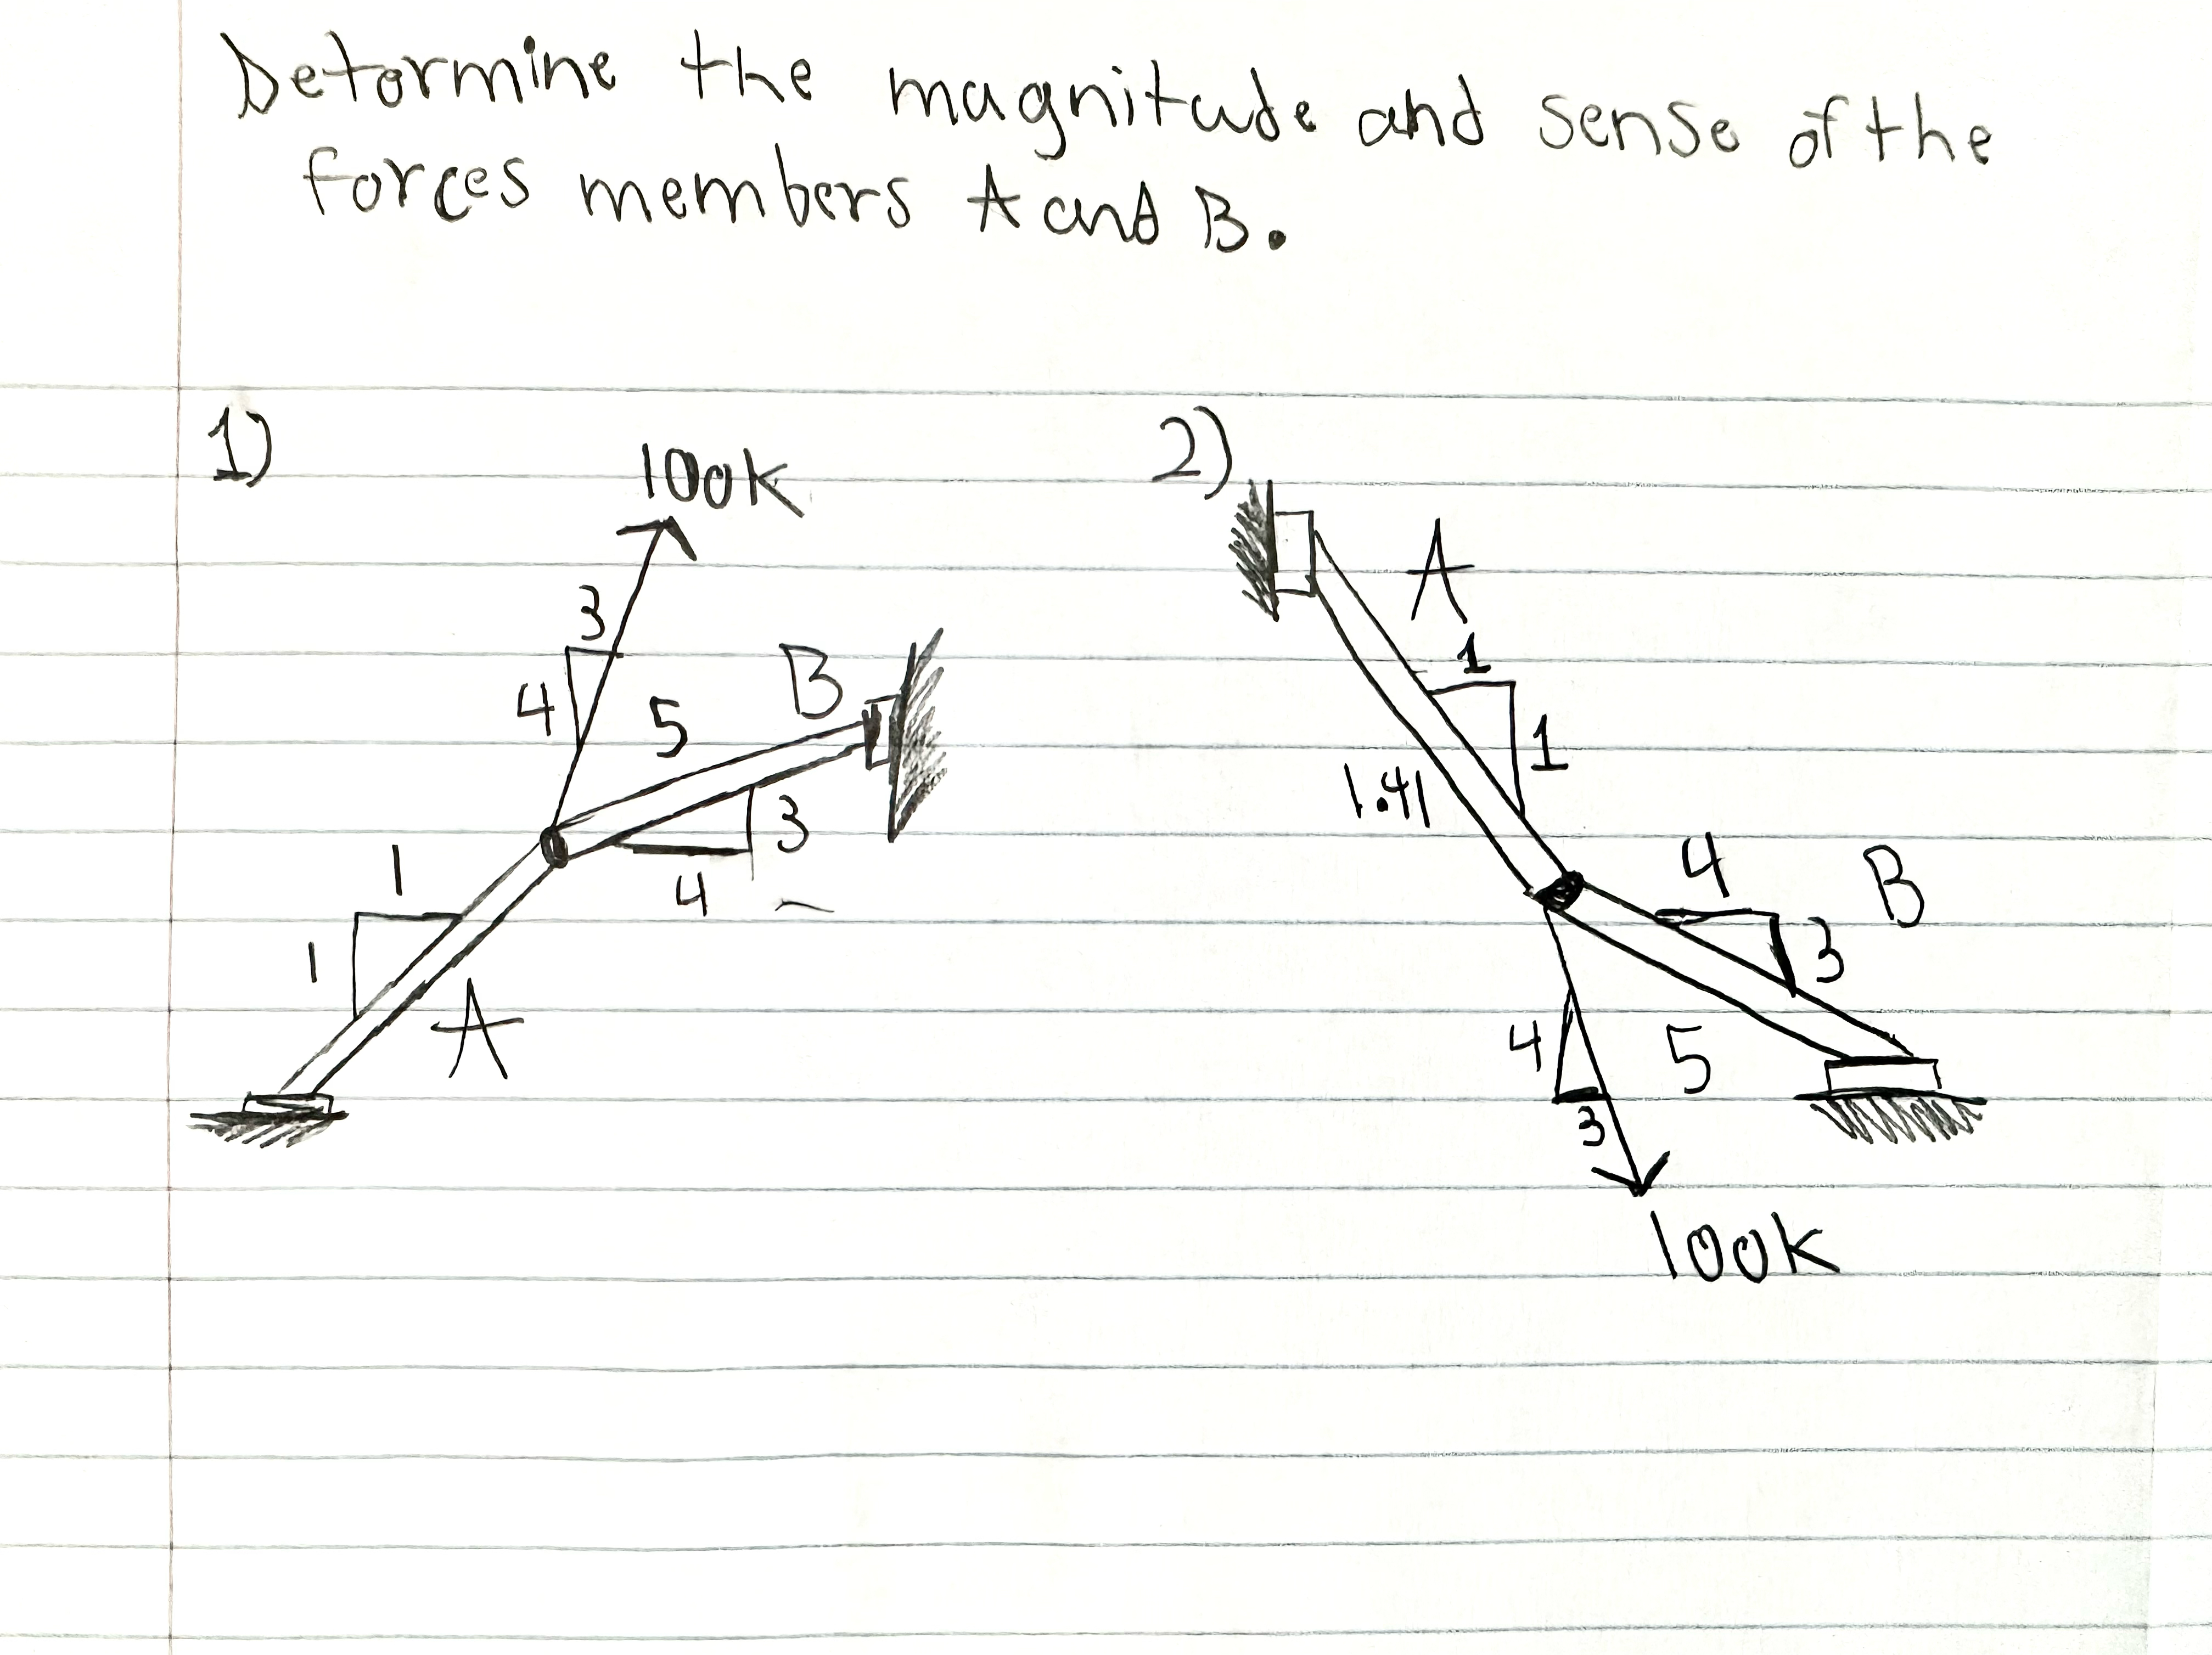 Determine the magnitude and sense of the
forces members A and B.
1)
100k
3
4
5
B
3
4
1
1
A
2)
A
1
1
1.41
4
B
3
4
5
3
100k